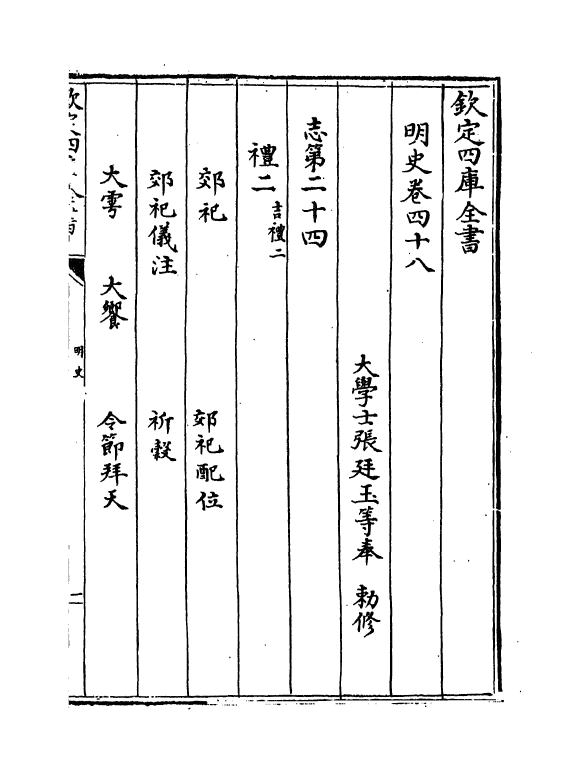 欽定四庫全書
明史卷四十八
大學士張廷玉等奉 勅修
志第二十四
禮二 吉禮二
郊祀 郊祀配位
郊祀儀注 祈穀
大雩 大饗 令節拜天
明史
二